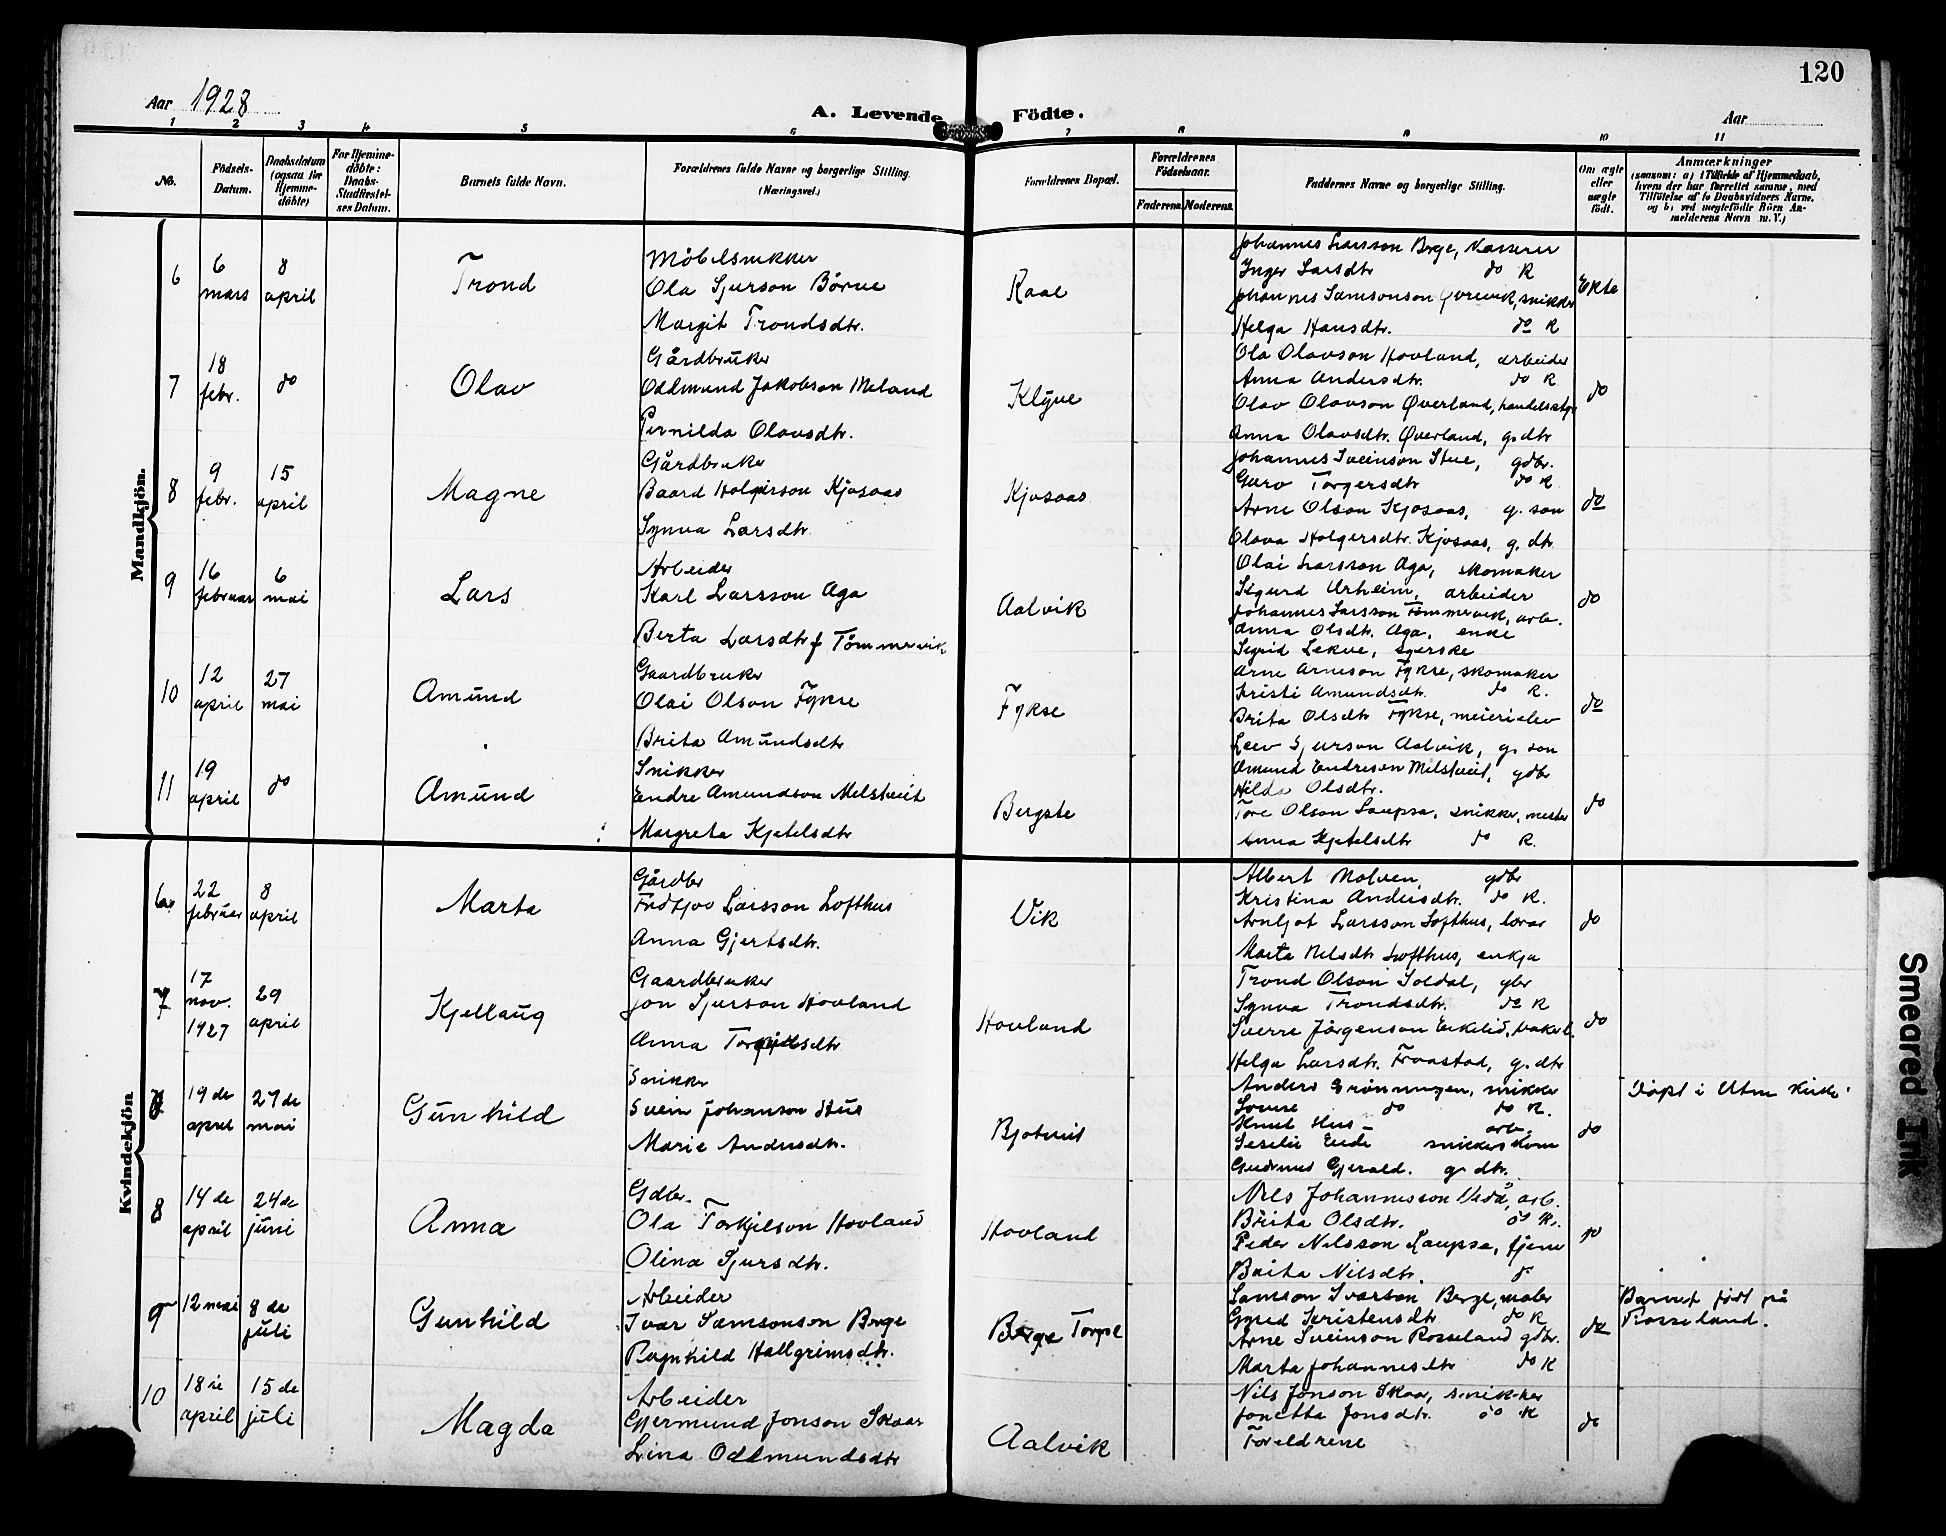 120
Aar 1928
A. Levende Födte.
Aar
1 2 3 4 5 6 7 8 9 10 11
No.
Födsels-
Datum.
Daabsdatum
(ogsaa for
Hjemme-
döbte)
For Hjemme-
döbte:
Daabs-
Stadfæstel-
ses Datum.
Barnets fulde Navn.
Forældrenes fulde Navne og borgerlige Stilling.
(Næringsvei.)
Forældrenes Bopæl.
Forældrenes
Födselsaar.
Faderens. Moderens.
Faddernes Navne og borgerlige Stilling.
Om ægte
eller
uægte
födt.
Anmærkninger
(saasom: a) i Tilfælde af Hjemmedaab,
hvem der har forrettet samme, med
Tilföielse af to Daabsvidners Navne,
og b) ved uægtefödte Börn An-
melderens Navn m. V.)
Mandkjön.
6
6
mars
8
april
Trond
Möbelsnikker
Ola Sjurson Börve
Margit Trondsdtr.
Raae
Johannes Larsson Berge, Kasserer
Inger Larsdtr do K
Johannes Samsonson Øvrevik, snikker
Helga Hansdtr. do K
Ekte
7
18
febr.
do
Olav
Gårdbruker
Oddmund Jakobson Meland
Pernilda Olavsdtr.
Klyve
Ola Olavson Hovland, arbeider
Anna Andersdtr. do K
Olav Olavson Øverland,
Anna Olavsdtr. Øverland, g. dtr
do
8
9
febr.
15
april
Magne
Gårdbruker
Baard Holgerson Kjosaas
Synva Larsdtr
Kjosaas
Johannes Sveinson Stue, gdbr.
Guro Torgersdtr do K
Arne Olson Kjosaas, g. son
Olava Holgersdtr. Kjosaas, g. dtr
do
9
16
februar
6
mai
Lars
Arbeider
Karl Larsson Aga
Berta Larsdtr f Tömmervik
Aalvik
Olai Larsson Aga, skomaker
Sigurd Urheim, arbeider
Johannes Larsson Tömmervik, arb.
Anna Olsdtr. Aga, enke
Sigrid Lekve, syerske
do
10
12
april
27
mai
Amund
Gaardbruker
Olai Olson Fykse
Brita Amundsdtr
Fykse
Arne Arneson Fykse, skomaker
Kristi Amundsdtr. do K.
Brita Olsdtr Fykse, meierielev
Leiv Sjurson Aalvik, g. son
do
11
19
april
do
Amund
Snikker
Endre Amundson Melstveit
Margreta Kjetelsdtr
Bergste
Amund Endreson Melstveit, gdbr
Hilda Olsdtr.
Tore Olson Laupsa, snikker, mester
Anna Kjetelsdtr do K.
do
Kvindekjön
6
22
februar
8
april
Marta
Gårdbr
Fridtjov Larsson Lofthus
Anna Gjertsdtr.
Vik
Albert Molven, gdbr
Kristina Andersdtr. do K.
Arnljot Larsson Lofthus, lærar
Marta Nilsdtr Lofthus, enkja
do
7
17
nov.
1927
29
april
Kjellaug
Gaardbruker
Jon Sjurson Hovland
Anna Torkjelsdtr
Hovland
Trond Olson Soldal, gbr
Synva Trondsdtr. do K
Sverre Jörgenson
Helga Larsdtr. Fraastad, g. dtr
do
19 de
april
27 de
mai
Gunhild
Snikker
Svein Johanson Hus
Marie Andersdtr.
Bjotveit
Anders Grønningen, snikker
Lovise do do K.
Knut Hus – arb.
Seselie Eide snikkers kone
Gudrund Gjerald. g. dtr.
do
Döpt i Utne Kirke.
8
14 de
april
24 de
juni
Anna
Gdbr.
Ola Torkjelson Hovland
Olina Sjursdtr.
Hovland
Nils Johannesson Vedå, arb.
Brita Olsdtr. do K.
Peder Nilsson Laupsa,
Brita Nilsdtr.
do
9
12 mai
8 de
juli
Gunhild
Arbeider
Ivar Samsonson Berge
Ragnhild Hallgrimsdtr.
Berge Torpe
Samson Ivarson Berge, maler
Gyrid Kristensdtr do K
Arne Sveinson Rosseland gdbr.
Marta Johannesdtr do K
do
Barnet födt på
Rosseland.
10
18 de
april
15 de
juli
Magda
Arbeider
Gjermund Jonson Skaar
Lina Oddmundsdtr
Aalvik
Nils Jonson Skaar, snikker
Jonetta Jonsdtr. do K
Foreldrene
do
Smeared Ink